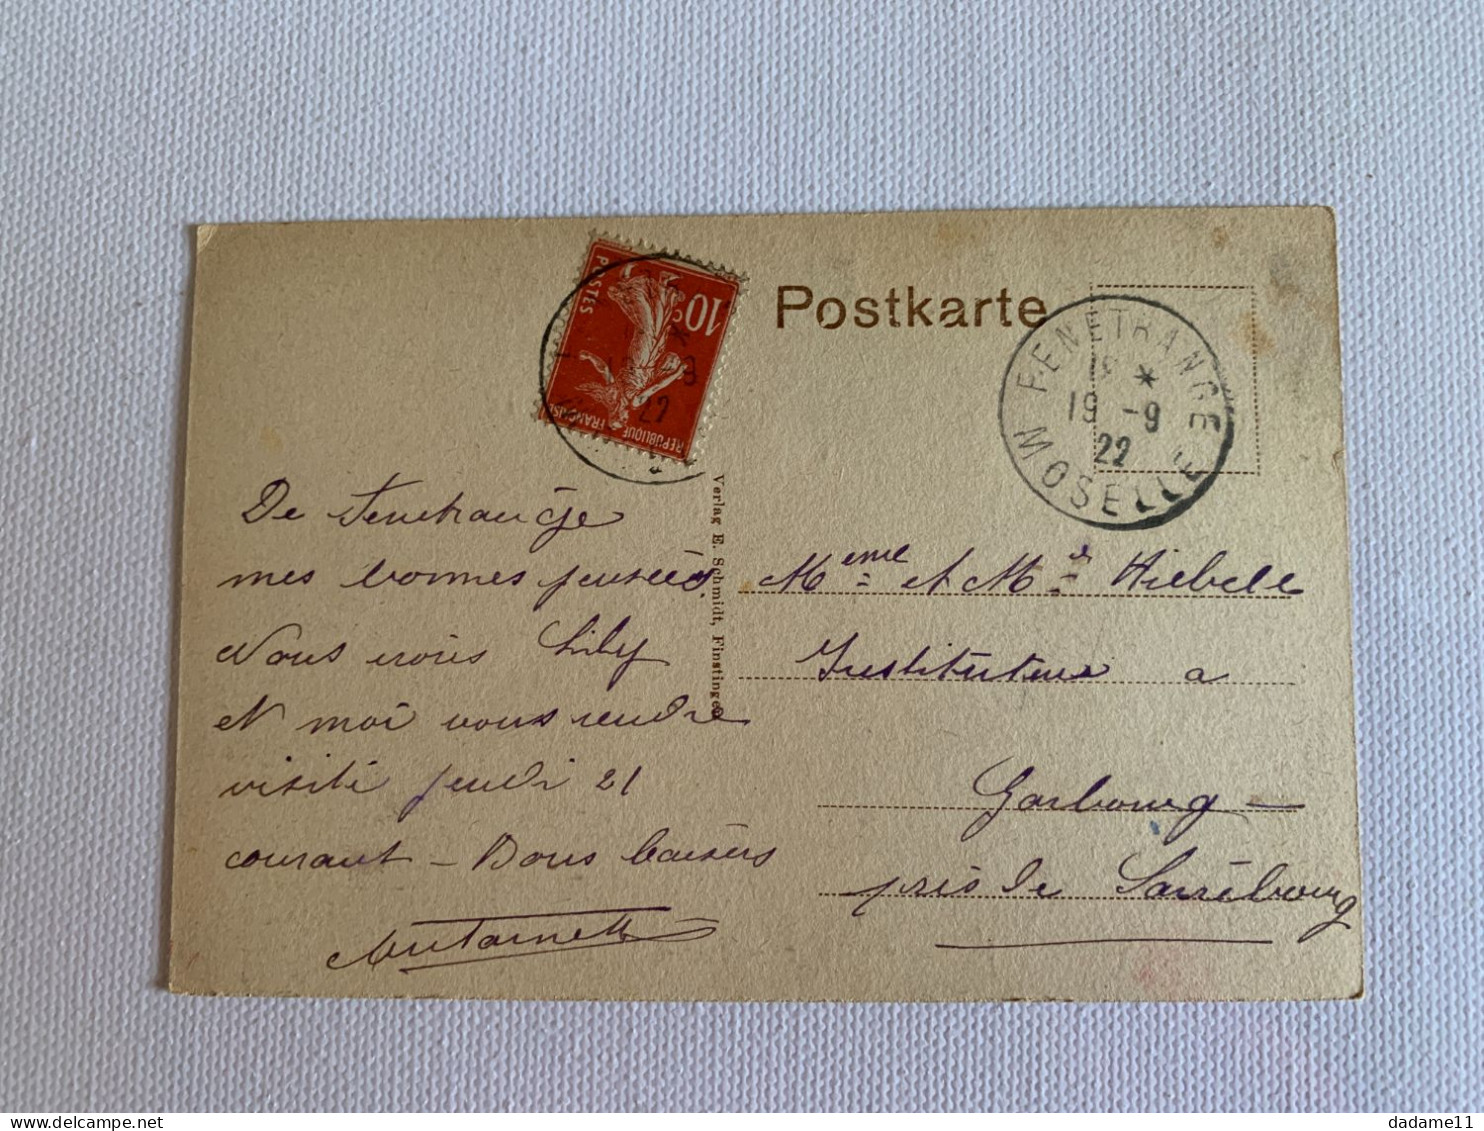 Postkarte
10c
POSTES
REPUBLIQUE FRANÇAISE
FENETRANGE
19 -9
22
MOSELLE
19 -9
22
De Fenetrange
mes bonnes pensées.
Nous irons Lily
et moi vous rendre
visite jeudi 21
courant - Bons baisers
Antoinette
Verlag E. Schmidt, Finstingen
Meme et Mr Hiebell
Instituteur a
Gosbourg -
près de Sarrebourg
dadame11